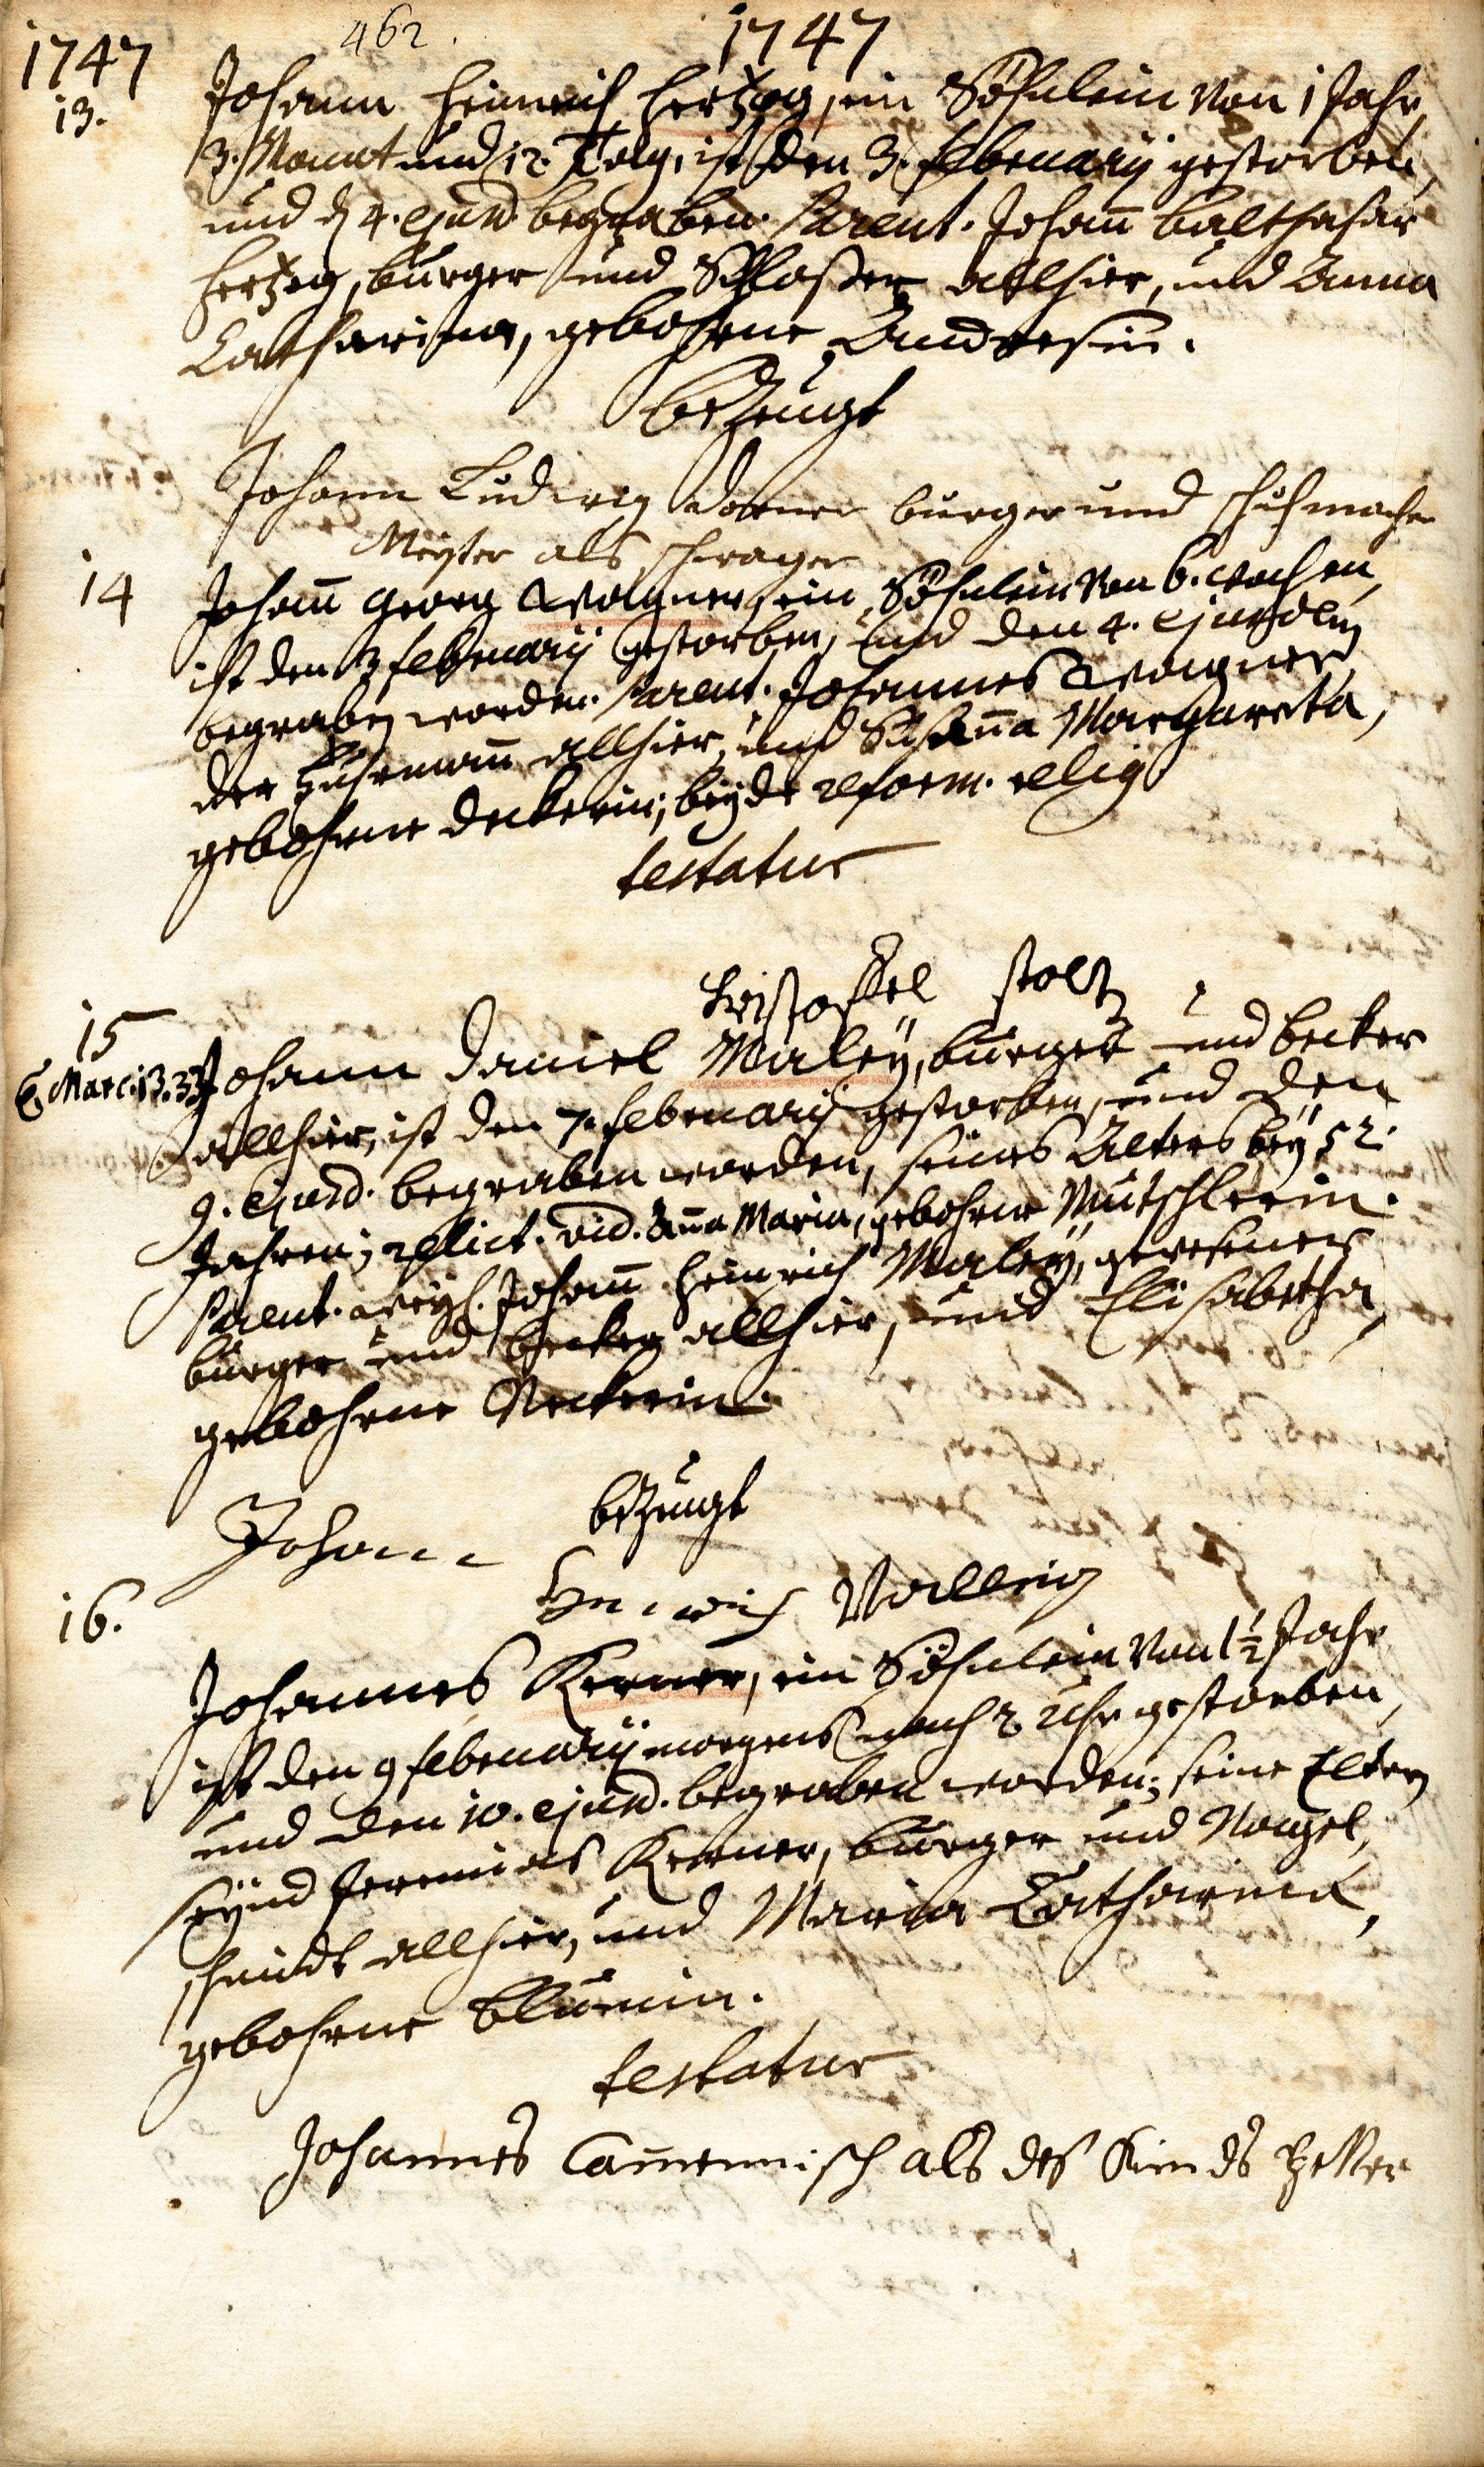 462.
1747
1747
13.
Johann Heinrich Hertzog, ein Söhnlein von 1 Jahr,
3. Monat und 12. Tag, ist den 3. february gestorben,
und d 4. ejusd. begraben. Parent. Johan̄ Balthasar
Hertzog, burger und Schlosser allhier, und Anna
Catharina, gebohrne Andresin.
bezeugt
Johann Ludwig burger und schuhmacher
Meyster als
14
Johan̄ Georg Wagner, ein Söhnlein von 6. wochen,
ist den 3 february gestorben, und den 4. ejusdem
begraben worden. Parent. Johannes Wagner
der Fuhrman̄ allhier, und Susan̄a Margareta,
gebohrne Deckerin; beyde reform. relig
testatur
Cristoffel Stoltz
15
C. Marc: 13. 33
Johann Daniel Maley, burger und becker
allhier, ist den 7. february gestorben, und den
9. ejusd. begraben worden, seines Alters bey 52.
Jahren; relict. vid. An̄a Maria, gebohrne Mutschlerin.
Parent. weyl. Johan̄ Heinrich Maley, gewesener
burger und becker allhier, und Elisabetha,
gebohrne Neckerin.
bezeugt
Johann
Henrich
16.
Johannes Kerner, ein Söhnlein von 1½ Jahr
ist den 9 february morgens nach 2 Uhr gestorben,
und den 10. ejusd. begraben worden; seine Eltern
seynd Jeremias Kerner, burger und Nagel,
schmidt allhier, und Maria Catharina,
gebohrne Blumin.
testatur
Johannes Cam̄ennisch als des Kinds Petter